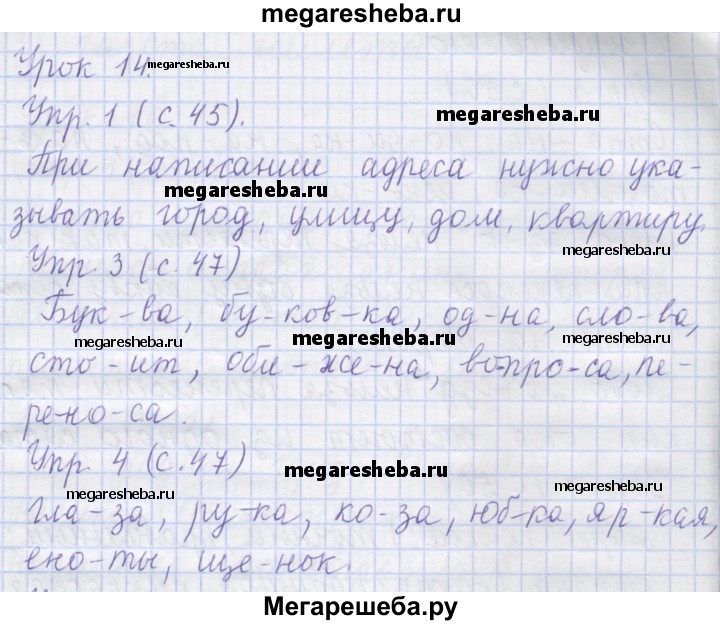 megaresheba.ru
Урок 14.
megaresheba.ru
Упр. 1 (с. 45).
megaresheba.ru
При написании адреса нужно ука-
megaresheba.ru
зывать город, улицу, дом, квартиру.
megaresheba.ru
Упр. 3 (с. 47)
Бук-ва, бу-ков-ка, од-на, сло-ва,
megaresheba.ru
megaresheba.ru
megaresheba.ru
сто-ит, оби-же-на, во-про-са, пе-
ре-но-са.
Упр. 4 (с. 47)
megaresheba.ru
megaresheba.ru
megaresheba.ru
гла-за, ру-ка, ко-за, юб-ка, яр-кая,
ено-ты, ще-нок.
megaresheba.ru
megaresheba.ru
Мегарешеба.ру